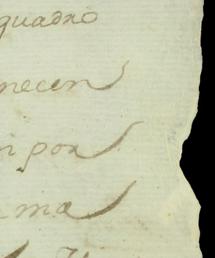 quadro
necen
n por
ma